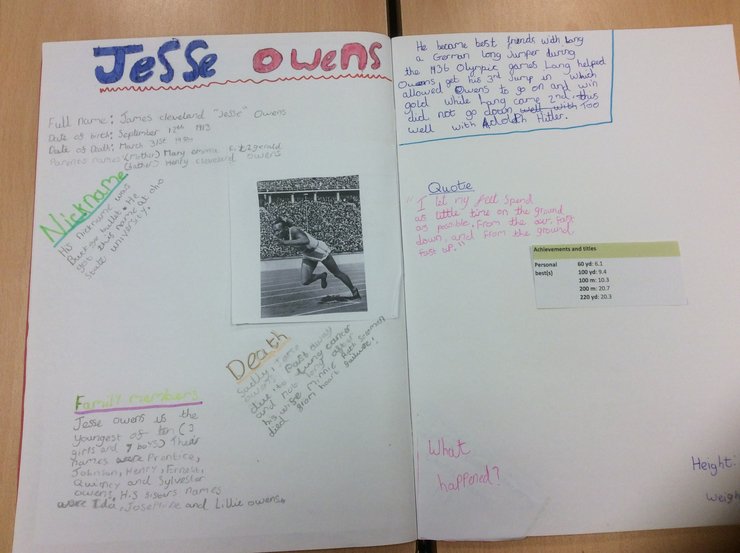 Jesse Owens
Full name: James cleveland "Jesse" Owens
Date of birth: September 12th 1913
Date of Death: March 31st 1980
Parents names (mother) Mary emma Fitzgerald
(father) Henry cleveland owens
Nickname
His nickname was
Buckeye bullet. He
got this name at oho
State university.
Death
Sadly,
owens Past away
due to lung cancer
and not long after
his wife Minnie Ruth Soloman
died from heart failure!
Family members
Jesse owens is the
youngest of ten (3
girls and 7 boys) Their
names were Prentice,
Johnson, Henry, Ernest,
Quincy and Sylvester
owens. His sisters names
were Ida, Josephine and Lillie owens.
He became best friends with Lang
a German long Jumper during
the 1936 Olympic games Lang helped
Owens, get his 3rd Jump in which
allowed Owens to go on and win
gold while Lang came 2nd. this
did not go down well with Too
well with Adolph Hitler.
Quote
"I let my feet Spend
as little time on the ground
as possible. From the air, fast
down, and from the ground,
fast up."
Achievements and titles
Personal best(s) 60 yd: 6.1
100 yd: 9.4
100 m: 10.3
200 m: 20.7
220 yd: 20.3
What
happened?
Height:
Weigh